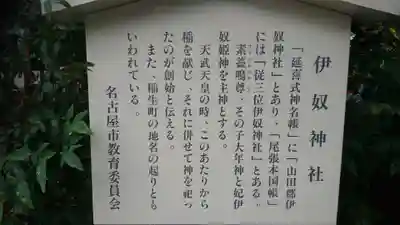 伊奴神社
「延喜式神名帳」に「山田郡伊
奴神社」とあり、「尾張本国帳」
には「従三位伊奴神社」とある。
素盞嗚尊、その子大年神と妃伊
奴姫神を主神とする。
天武天皇の時、このあたりから
稲を献じ、それに併せて神を祀っ
たのが創始と伝える。
また、稲生町の地名の起りとも
いわれている。
名古屋市教育委員会